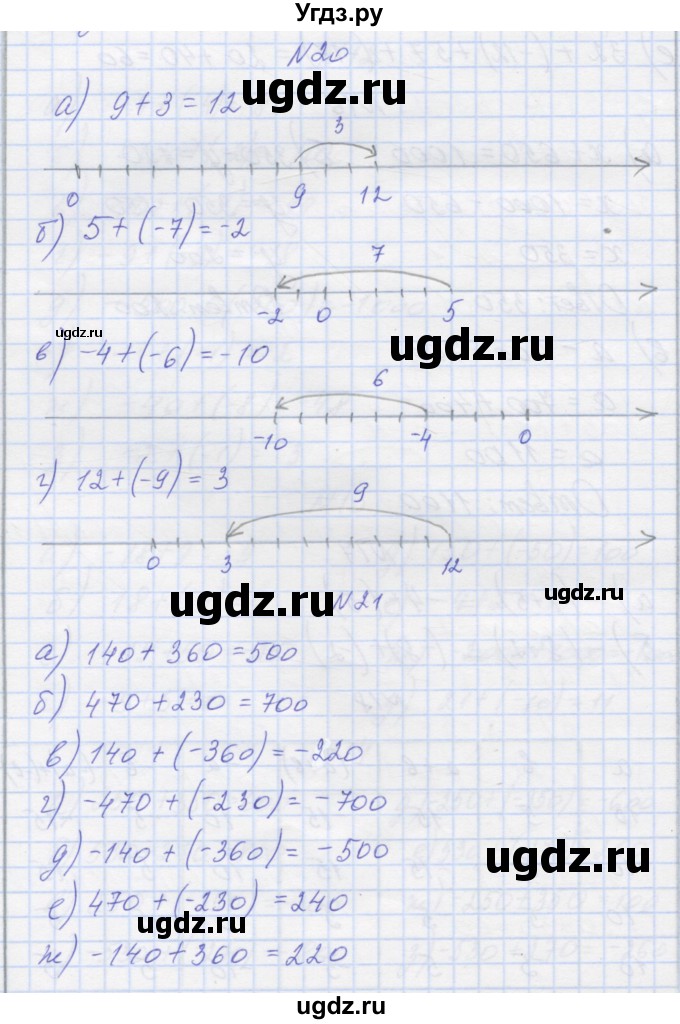 Угдз.ру
N20
а) 9 + 3 = 12
ugdz.ru
3
0 9 12
б) 5 + (-7) = -2
7
-2 0 5
ugdz.ru
ugdz.ru
в) -4 + (-6) = -10
6
-10 -4 0
г) 12 + (-9) = 3
9
0 3 12
ugdz.ru
ugdz.ru
N21
а) 140 + 360 = 500
б) 470 + 230 = 700
в) 140 + (-360) = -220
г) -470 + (-230) = -700
д) -140 + (-360) = -500
ugdz.ru
е) 470 + (-230) = 240
ugdz.ru
ж) -140 + 360 = 220
ugdz.ru